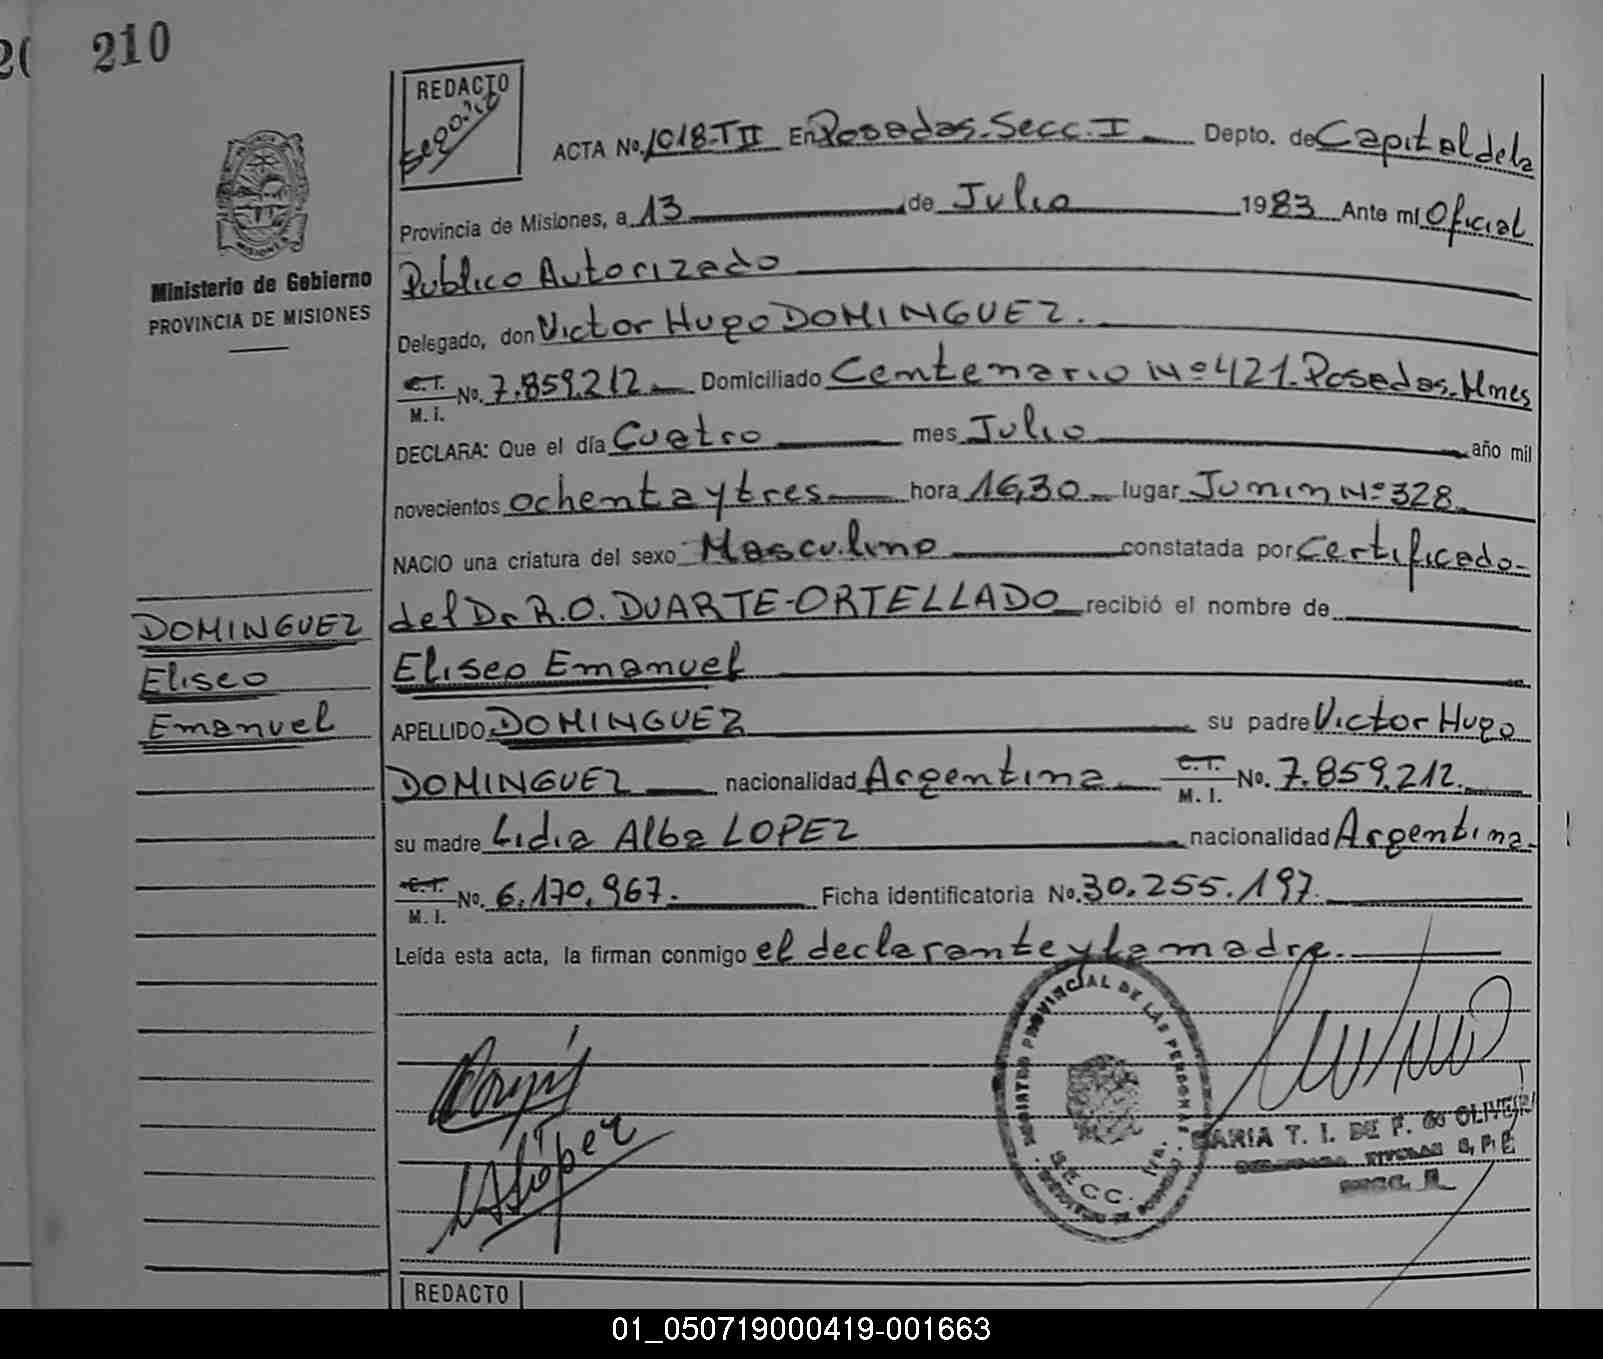 210
REDACTO
ACTA No. 1018-TII En Posadas. Secc. I Depto. de Capital de la
Provincia de Misiones, a 13 de Julio 1983 Ante mí Oficial
Publico Autorizado
Ministerio de Gobierno
PROVINCIA DE MISIONES
Delegado, don Victor Hugo DOMINGUEZ.
C.I. M. I. No. 7.859.212 Domiciliado Centenario Nº 421. Posadas. Mnes
DECLARA: Que el día Cuatro mes Julio año mil
novecientos ochenta y tres hora 16,30 lugar Junin Nº 328
NACIO una criatura del sexo Masculino constatada por Certificado
del Dr R.O. DUARTE-ORTELLADO recibió el nombre de
DOMINGUEZ
Eliseo
Emanuel
Eliseo Emanuel
APELLIDO DOMINGUEZ su padre Victor Hugo
DOMINGUEZ nacionalidad Argentina C.I. M. I. No. 7.859.212.
su madre Lidia Alba LOPEZ nacionalidad Argentina
C.I. M. I. No. 6.170.967. Ficha identificatoria No. 30.255.197.
Leída esta acta, la firman conmigo el declarante y la madre.
REGISTRO PROVINCIAL DE LAS PERSONAS
SECC.
MARIA T. I. DE P. de OLIVEIRA
REDACTO
01_050719000419-001663